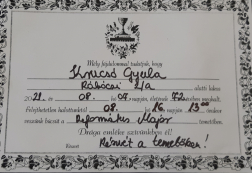 Mély fájdalommal tudatjuk, hogy
Krucsó Gyula
Rákóczi 2/a alatti lakos
2021. év 08. hó 07. napján, életének 72. évében meghalt.
Felejthetetlen halottunktól 08. hó 16. napján 13⁰⁰ órakor
veszünk búcsút a Református Ólajos temetőben.
Drága emléke szívünkben él!
Részvét a temetőben!